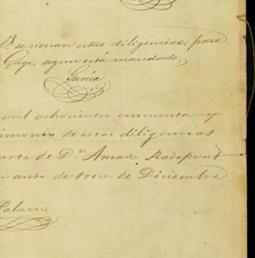 se cierran estas diligencias, para
Gefe, segun está mandado,
Garcia
mil ochocientos cincuenta y
timonio de estas diligencias
arte de Dn. Amad. Radepont
auto de trece de Diciembre
Palacio